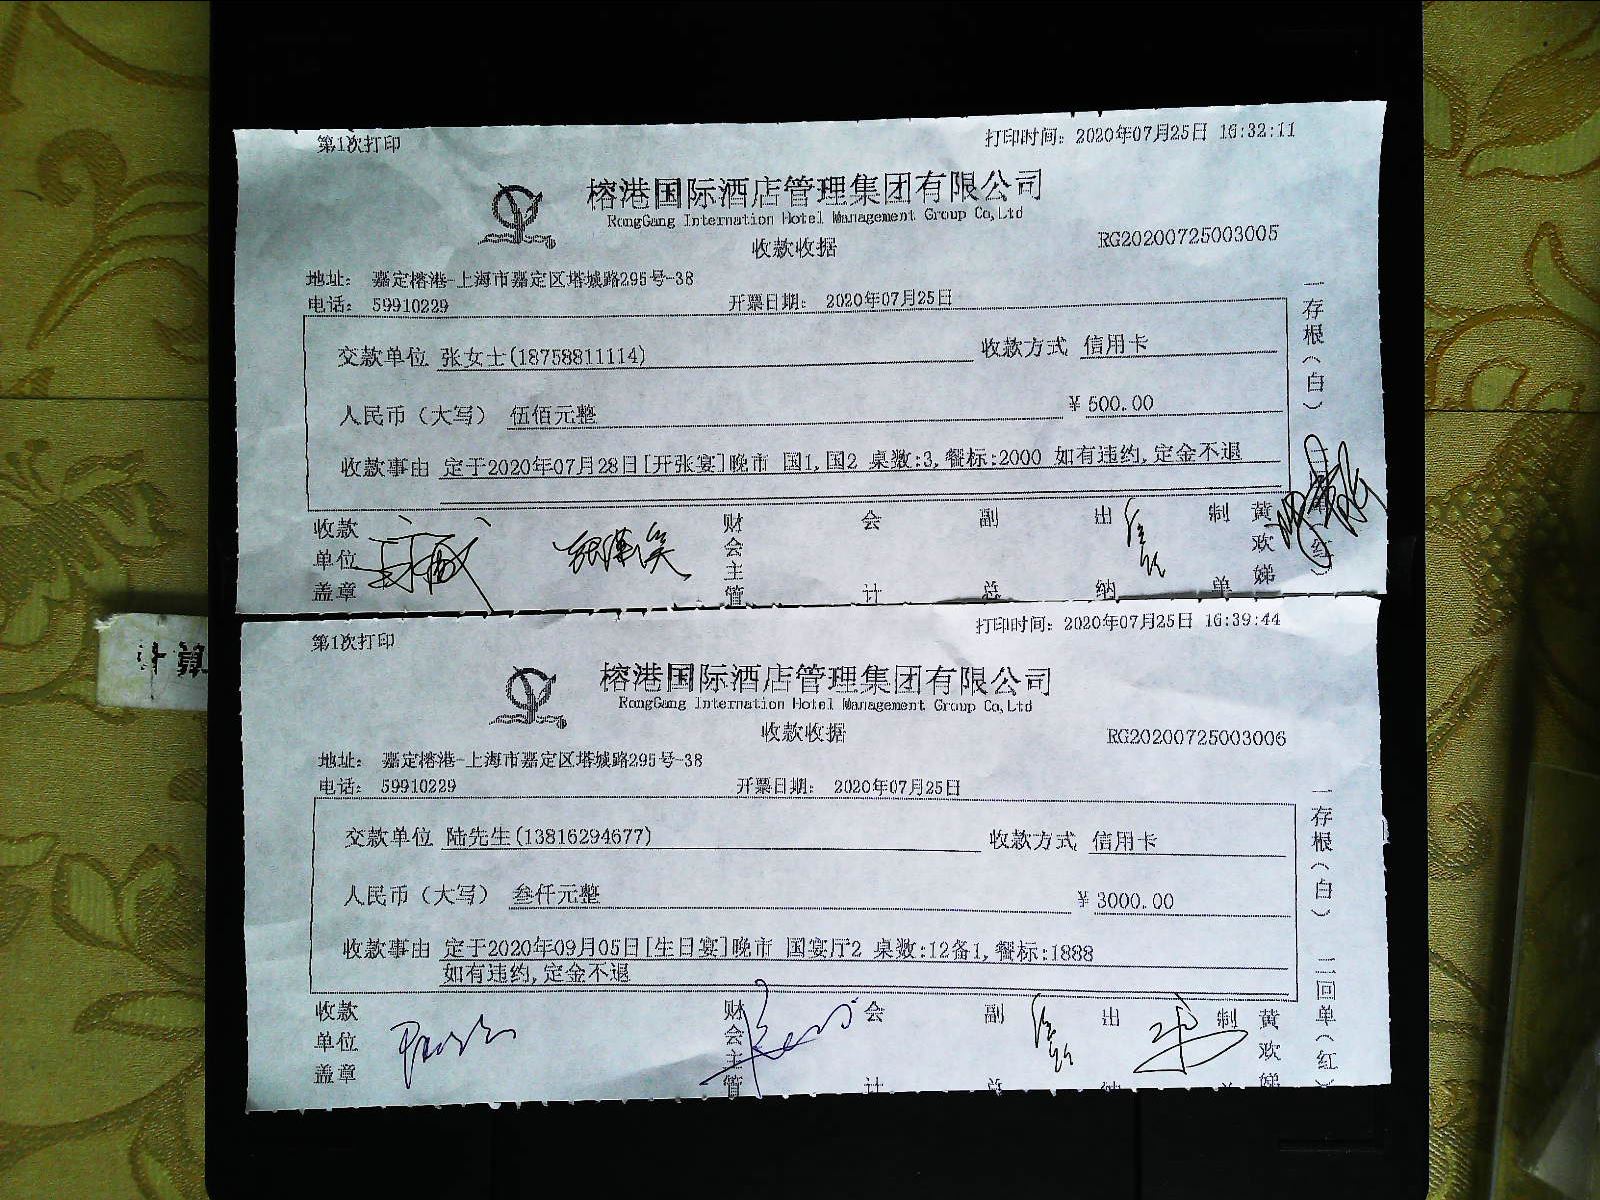 第1次打印
打印时间: 2020年07月25日 16:32:11
榕港国际酒店管理集团有限公司
RongGang Internation Hotel Management Group Co,Ltd
收款收据
RG20200725003005
地址: 嘉定榕港-上海市嘉定区塔城路295号-38
电话: 59910229
开票日期: 2020年07月25日
交款单位 张女士(18758811114) 收款方式 信用卡
人民币(大写) 伍佰元整 ¥500.00
收款事由 定于2020年07月28日[开张宴]晚市 国1,国2 桌数:3,餐标:2000 如有违约,定金不退
一存根(白)
(红)
收款单位盖章 财会主管 会计 副总 出纳 制单 黄欢娣
计算
第1次打印
打印时间: 2020年07月25日 16:39:44
榕港国际酒店管理集团有限公司
RongGang Internation Hotel Management Group Co,Ltd
收款收据
RG20200725003006
地址: 嘉定榕港-上海市嘉定区塔城路295号-38
电话: 59910229
开票日期: 2020年07月25日
交款单位 陆先生(13816294677) 收款方式 信用卡
人民币(大写) 叁仟元整 ¥3000.00
收款事由 定于2020年09月05日[生日宴]晚市 国宴厅2 桌数:12备1,餐标:1888
如有违约,定金不退
一存根(白) 二回单(红)
收款单位盖章 财会主管 会计 副总 出纳 制单 黄欢娣